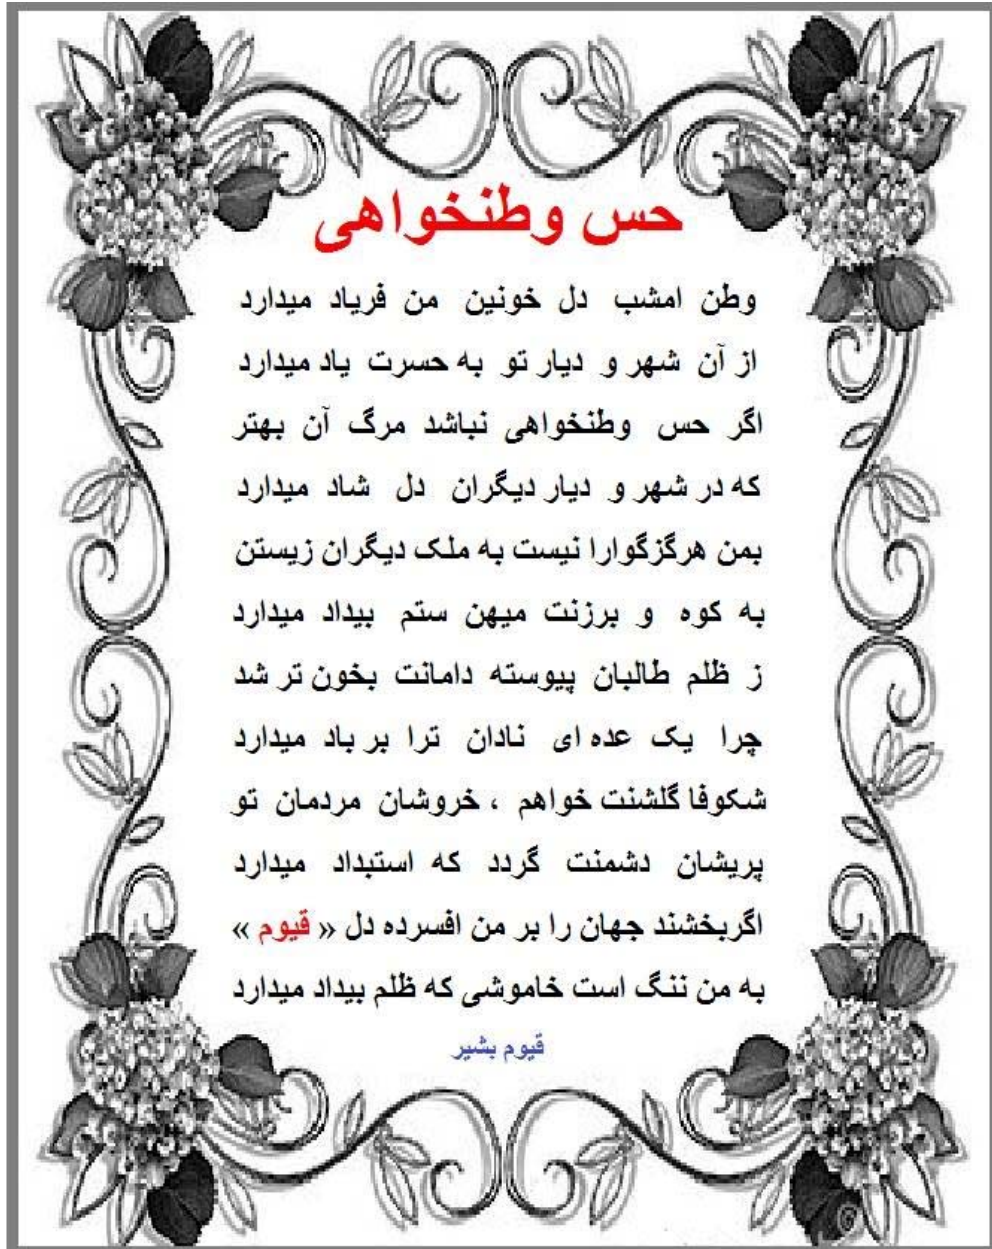 حس وطنخواهی
وطن امشب دل خونین من فریاد میدارد
از آن شهر و دیار تو به حسرت یاد میدارد
اگر حس وطنخواهی نباشد مرگ آن بهتر
که در شهر و دیار دیگران دل شاد میدارد
بمن هرگزگوارا نیست به ملک دیگران زیستن
به کوه و برزنت میهن ستم بیداد میدارد
ز ظلم طالبان پیوسته دامانت بخون تر شد
چرا یک عده ای نادان ترا بر باد میدارد
شکوفا گلشنت خواهم ، خروشان مردمان تو
پریشان دشمنت گردد که استبداد میدارد
اگربخشند جهان را بر من افسرده دل « قیوم »
به من ننگ است خاموشی که ظلم بیداد میدارد
قیوم بشیر